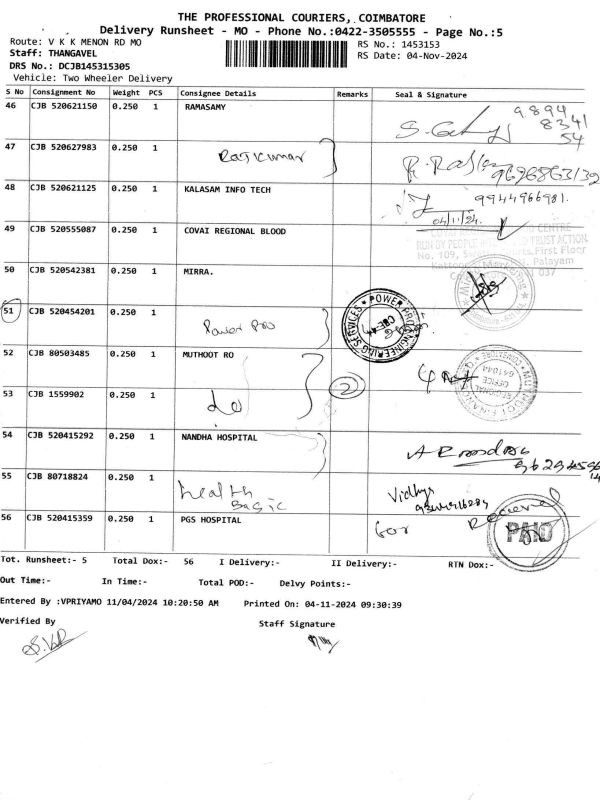 THE PROFESSIONAL COURIERS, COIMBATORE
Delivery Runsheet - MO - Phone No.:0422-3505555 - Page No.:5
Route: V K K MENON RD MO
RS No.: 1453153
Staff: THANGAVEL
RS Date: 04-Nov-2024
DRS No.: DCJB145315305
Vehicle: Two Wheeler Delivery
S No Consignment No Weight PCS Consignee Details Remarks Seal & Signature
46 CJB 520621150 0.250 1 RAMASAMY
9894
8341
54
47 CJB 520627983 0.250 1 Rajkumar
48 CJB 520621125 0.250 1 KALASAM INFO TECH 9944966981.
04/11/24.
49 CJB 520555087 0.250 1 COVAI REGIONAL BLOOD
50 CJB 520542381 0.250 1 MIRRA.
51 CJB 520454201 0.250 1 Power Pro
POWER PRO ENGINEERING SERVICES
52 CJB 80503485 0.250 1 MUTHOOT RO
2
REGIONAL OFFICE
53 CJB 1559902 0.250 1 do
54 CJB 520415292 0.250 1 NANDHA HOSPITAL
55 CJB 80718824 0.250 1 health Basic Vidhya
56 CJB 520415359 0.250 1 PGS HOSPITAL for Received
PAID
Tot. Runsheet:- 5 Total Dox:- 56 I Delivery:- II Delivery:- RTN Dox:-
Out Time:- In Time:- Total POD:- Delvy Points:-
Entered By :VPRIYAMO 11/04/2024 10:20:50 AM Printed On: 04-11-2024 09:30:39
Verified By Staff Signature